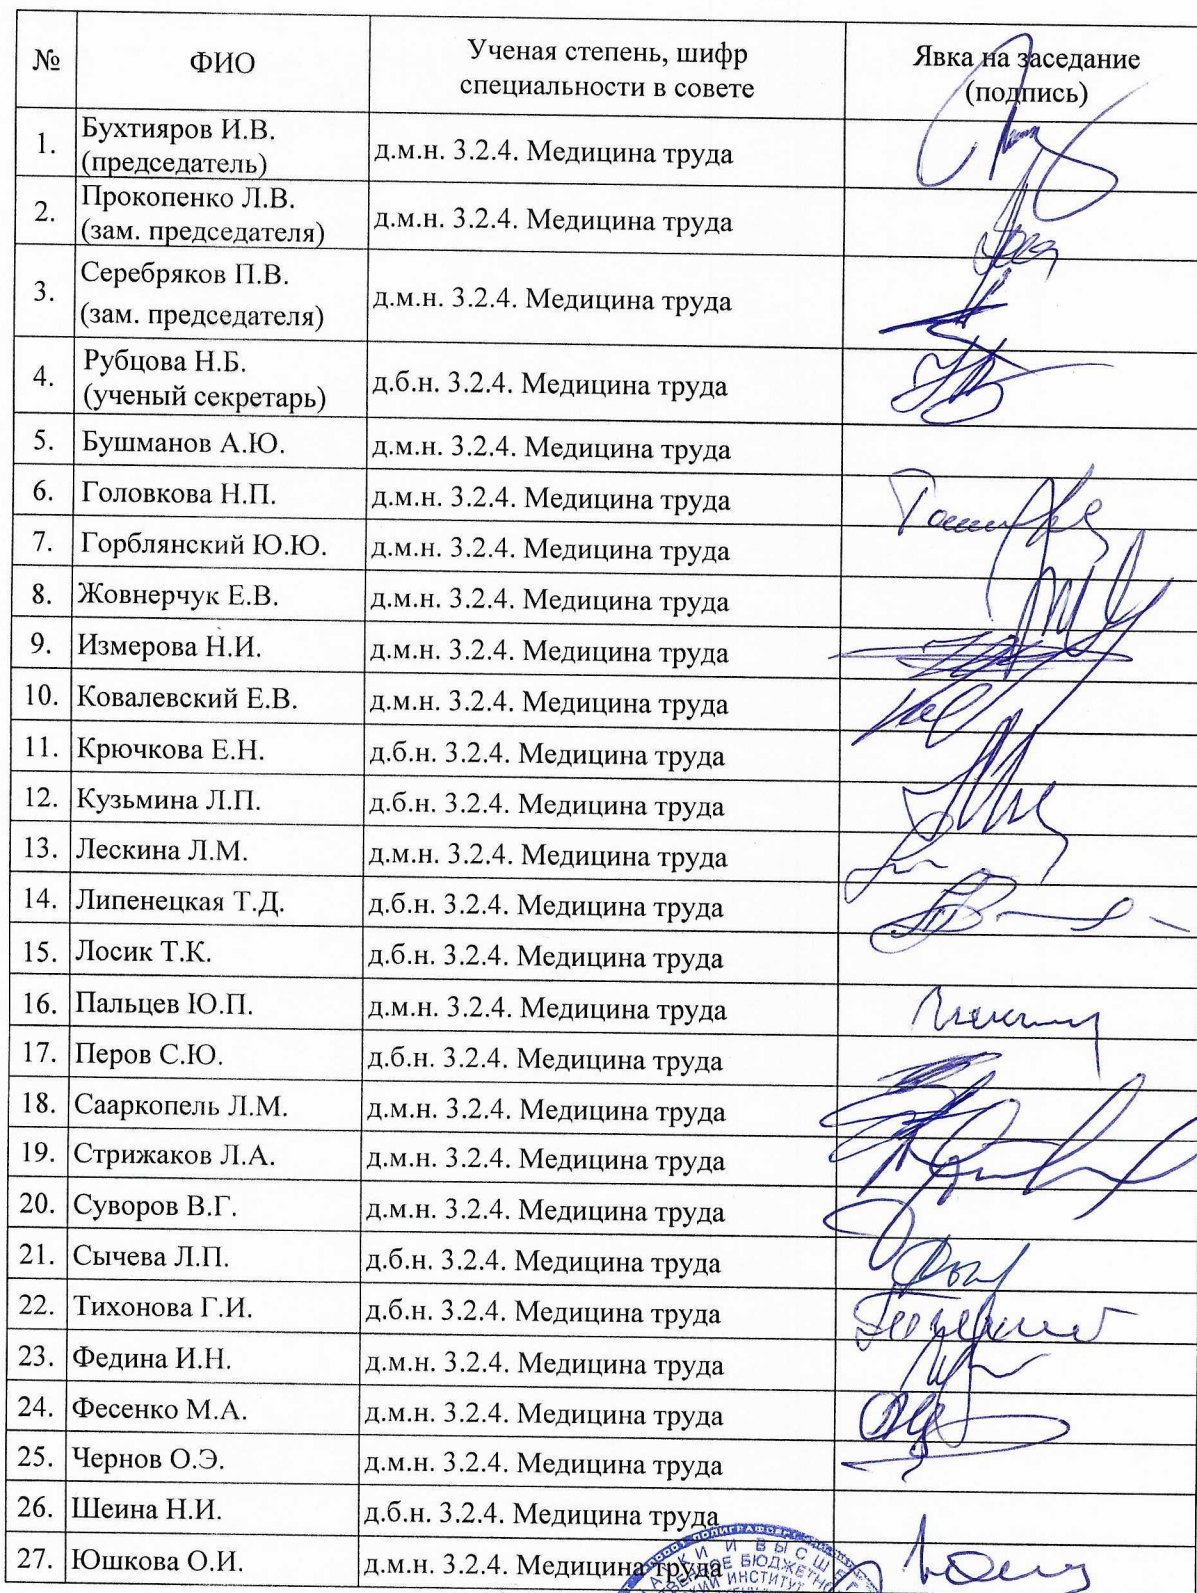 № ФИО Ученая степень, шифр специальности в совете Явка на заседание (подпись)
1. Бухтияров И.В. (председатель) д.м.н. 3.2.4. Медицина труда
2. Прокопенко Л.В. (зам. председателя) д.м.н. 3.2.4. Медицина труда
3. Серебряков П.В. (зам. председателя) д.м.н. 3.2.4. Медицина труда
4. Рубцова Н.Б. (ученый секретарь) д.б.н. 3.2.4. Медицина труда
5. Бушманов А.Ю. д.м.н. 3.2.4. Медицина труда
6. Головкова Н.П. д.м.н. 3.2.4. Медицина труда
7. Горблянский Ю.Ю. д.м.н. 3.2.4. Медицина труда
8. Жовнерчук Е.В. д.м.н. 3.2.4. Медицина труда
9. Измерова Н.И. д.м.н. 3.2.4. Медицина труда
10. Ковалевский Е.В. д.м.н. 3.2.4. Медицина труда
11. Крючкова Е.Н. д.б.н. 3.2.4. Медицина труда
12. Кузьмина Л.П. д.б.н. 3.2.4. Медицина труда
13. Лескина Л.М. д.м.н. 3.2.4. Медицина труда
14. Липенецкая Т.Д. д.б.н. 3.2.4. Медицина труда
15. Лосик Т.К. д.б.н. 3.2.4. Медицина труда
16. Пальцев Ю.П. д.м.н. 3.2.4. Медицина труда
17. Перов С.Ю. д.б.н. 3.2.4. Медицина труда
18. Сааркопель Л.М. д.м.н. 3.2.4. Медицина труда
19. Стрижаков Л.А. д.м.н. 3.2.4. Медицина труда
20. Суворов В.Г. д.м.н. 3.2.4. Медицина труда
21. Сычева Л.П. д.б.н. 3.2.4. Медицина труда
22. Тихонова Г.И. д.б.н. 3.2.4. Медицина труда
23. Федина И.Н. д.м.н. 3.2.4. Медицина труда
24. Фесенко М.А. д.м.н. 3.2.4. Медицина труда
25. Чернов О.Э. д.м.н. 3.2.4. Медицина труда
26. Шеина Н.И. д.б.н. 3.2.4. Медицина труда
27. Юшкова О.И. д.м.н. 3.2.4. Медицина труда